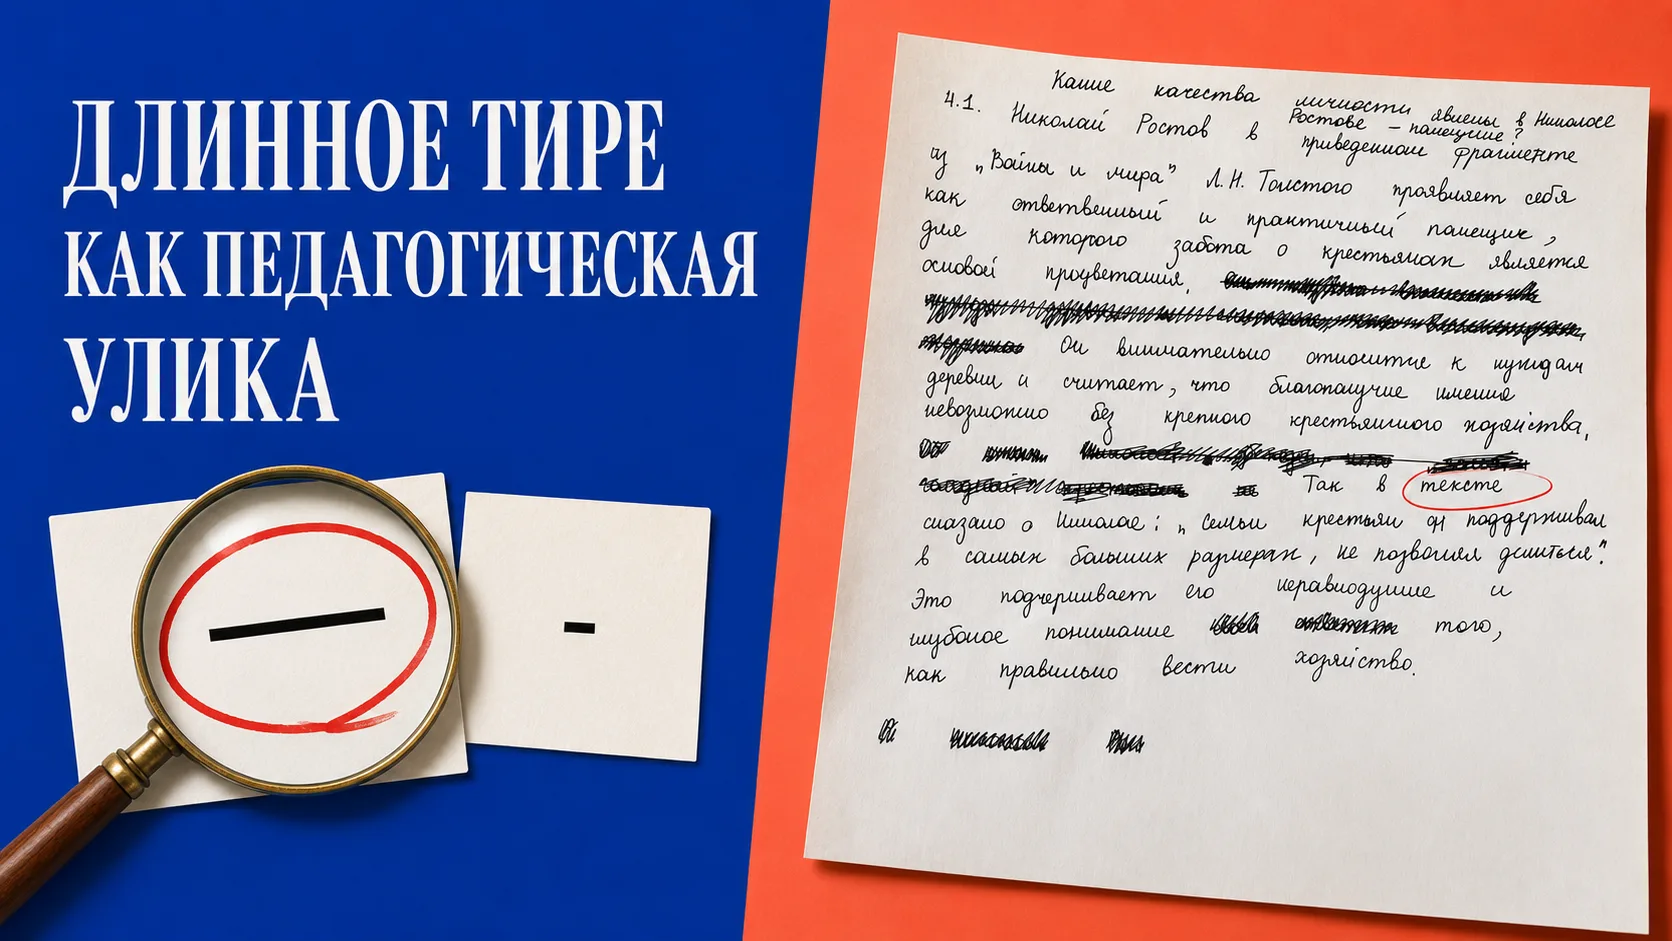 ДЛИННОЕ ТИРЕ
КАК ПЕДАГОГИЧЕСКАЯ
УЛИКА
Какие качества личности явлены в Николае
Ростове – помещике?
4.1. Николай Ростов в приведенном фрагменте
из „Войны и мира" Л.Н. Толстого проявляет себя
как ответственный и практичный помещик,
для которого забота о крестьянах является
основой процветания.
Он внимательно относится к нуждам
деревни и считает, что благополучие имения
невозможно без крепкого крестьянского хозяйства.
Так в тексте
сказано о Николае: „Семьи крестьян он поддерживал
в самых больших размерах, не позволяя делиться".
Это подчеркивает его неравнодушие и
глубокое понимание того,
как правильно вести хозяйство.